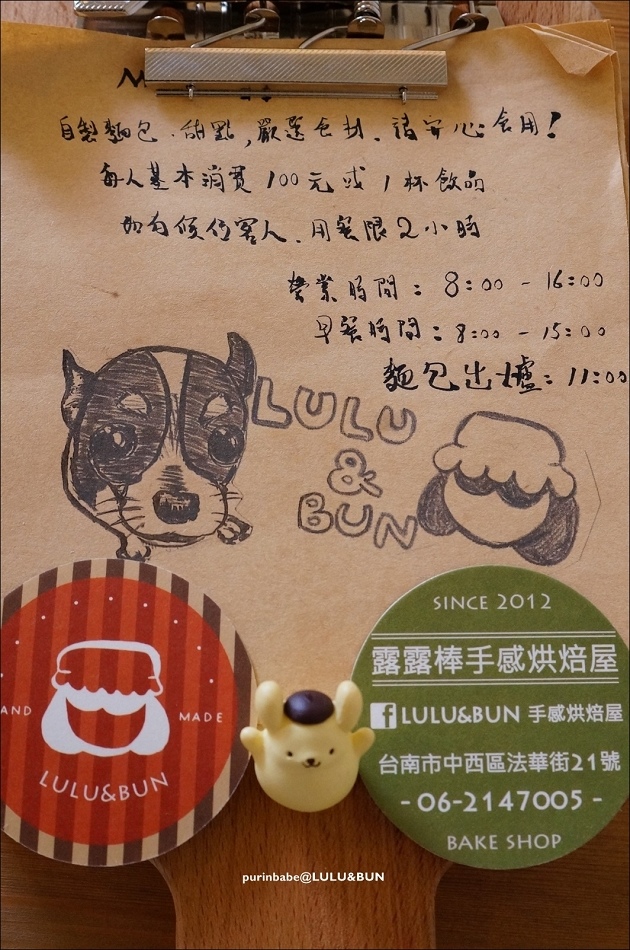 M
自製麵包、甜點,嚴選食材、請安心食用!
每人基本消費100元或1杯飲品
如有候位客人、用餐限2小時
營業時間:8:00-16:00
早餐時間:8:00-15:00
麵包出爐:11:00
LULU
&
BUN
AND MADE
LULU&BUN
SINCE 2012
露露棒手感烘焙屋
f LULU&BUN 手感烘焙屋
台南市中西區法華街21號
-06-2147005-
BAKE SHOP
purinbabe@LULU&BUN